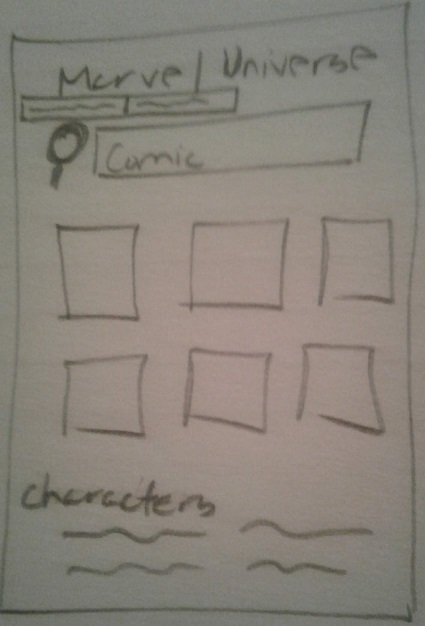 Marvel Universe
Comic
characters